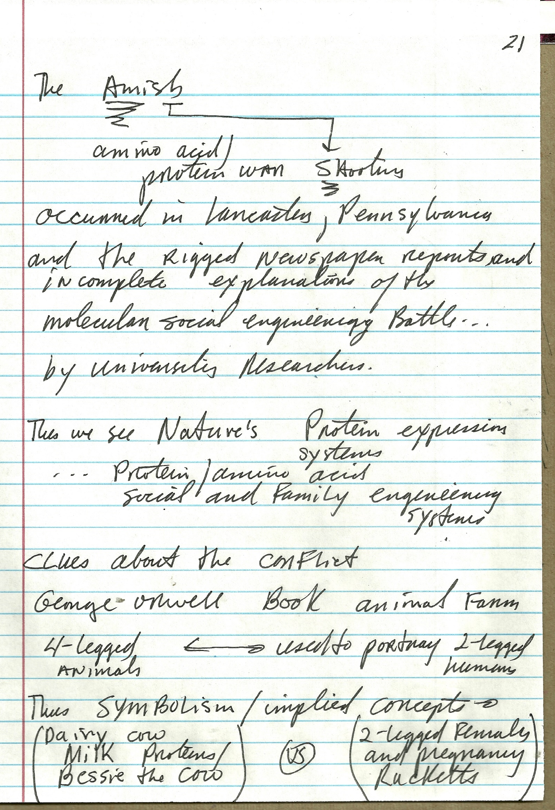 21
The Amish
amino acid/
protein war SHooting
occurred in Lancaster, Pennsylvania
and the Rigged Newspaper reports and
incomplete explanations of the
molecular social engineering Battle...
by universities Researchers.
Thus we see Nature's Protein expression
systems
... Protein/amino acid
social and Family engineering
systems
Clues about the conflict
George Orwell Book animal Farm
4-legged ←→ used to portray 2-legged
ANIMALS humans
Thus SYMBOLISM/implied concepts →
(Dairy cow
Milk Proteins/
Bessie the Cow) VS (2-legged Females
and pregnancy
Racketts)